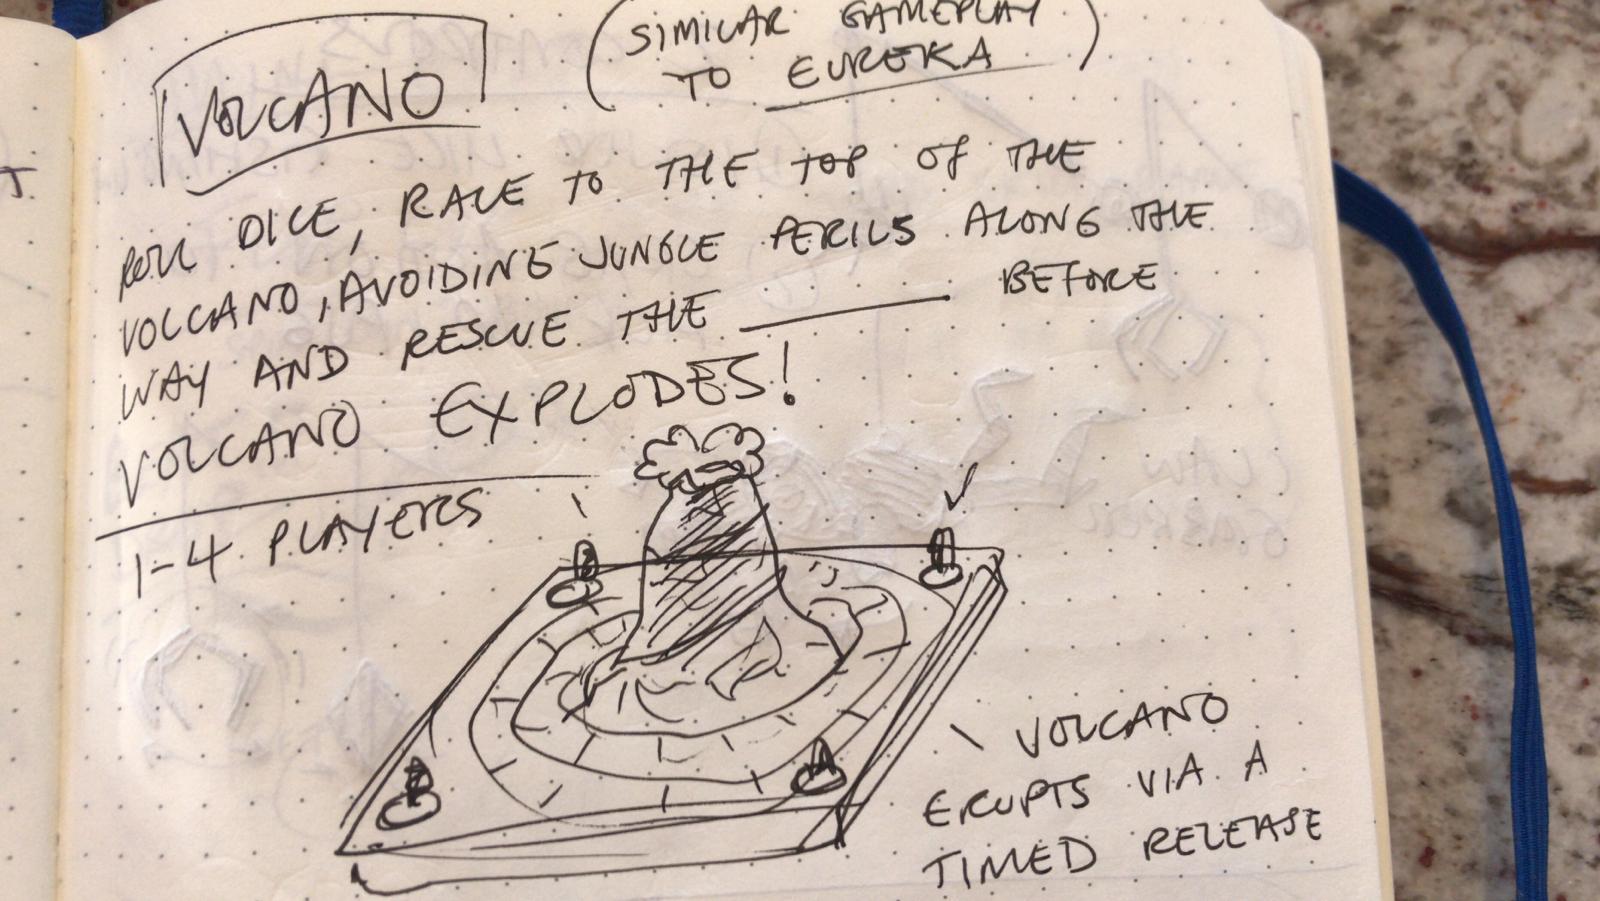 VOLCANO
(SIMILAR GAMEPLAY
TO EUREKA)
ROLL DICE, RACE TO THE TOP OF THE
VOLCANO, AVOIDING JUNGLE PERILS ALONG THE
WAY AND RESCUE THE ________ BEFORE
VOLCANO EXPLODES!
1-4 PLAYERS
\ VOLCANO
ERUPTS VIA A
TIMED RELEASE